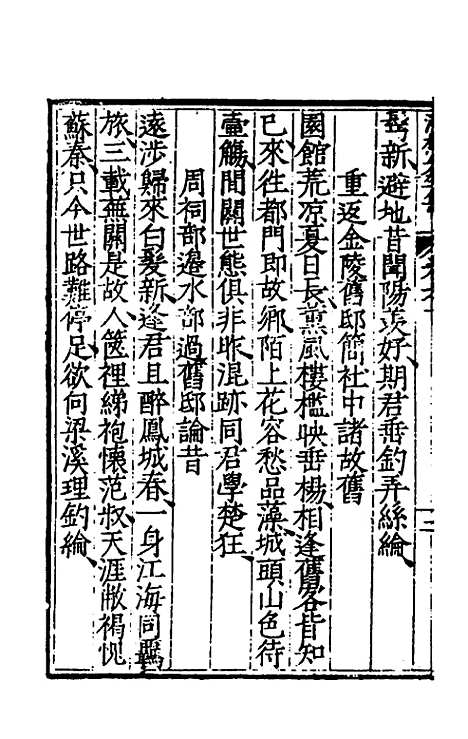 髩新避地昔聞陽羨好期君垂釣弄絲綸
重返金陵舊邸簡社中諸故舊
園館荒凉夏日長薰風樓檻映垂楊相逢舊客皆知
己來徃都門即故鄉陌上花容愁品藻城頭山色待
壷觴間關世態俱非昨混跡同君學楚狂
周祠部邉水部過舊邸論昔
遠涉歸來白髮新逢君且醉鳳城春一身江海同
旅三載無關是故人篋裡綈袍懷范叔天涯敝褐愧
蘇秦只今世路難停足欲向梁溪理釣綸